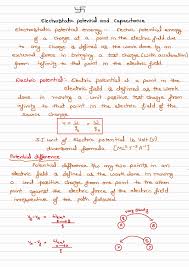 Electrostatic potential and Capacitance
Electrostatic potential energy - Electric potential energy
of a charge at a point in the electric field due
to any charge is defined as the work done by an
external force in bringing a test charge (with acceleration)
from infinity to that point in the electric field.
Electric potential - Electric potential at a point in the
electric field is defined as the work
done in moving a unit positive test charge from
infinity to that point in the electric field of the
source charge.
S.I unit of Electric potential is Volt (V)
dimensional formula
Potential difference
Potential difference b/w any two points in an
electric field is defined as the work done in moving
a unit positive charge from one point to the other
point against the electric force of the electric field
irrespective of the path followed.